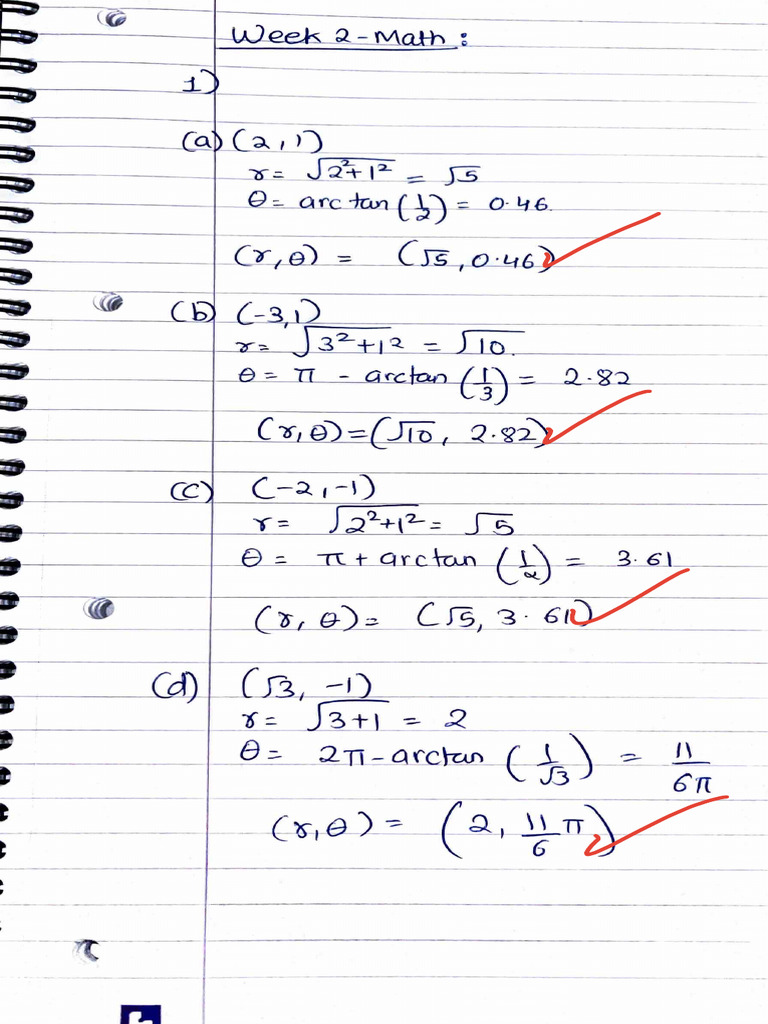 Week 2 - Math :
1)
(a) (2,1)
r = √(2²+1²) = √5
θ = arctan (1/2) = 0.46.
(r,θ) = (√5, 0.46)
(b) (-3,1)
r = √(3²+1²) = √10.
θ = π - arctan (1/3) = 2.82
(r,θ) = (√10, 2.82)
(c) (-2,-1)
r = √(2²+1²) = √5
θ = π + arctan (1/2) = 3.61
(r, θ) = (√5, 3.61)
(d) (√3, -1)
r = √(3+1) = 2
θ = 2π - arctan (1/√3) = 11/6π
(r,θ) = (2, 11/6 π)